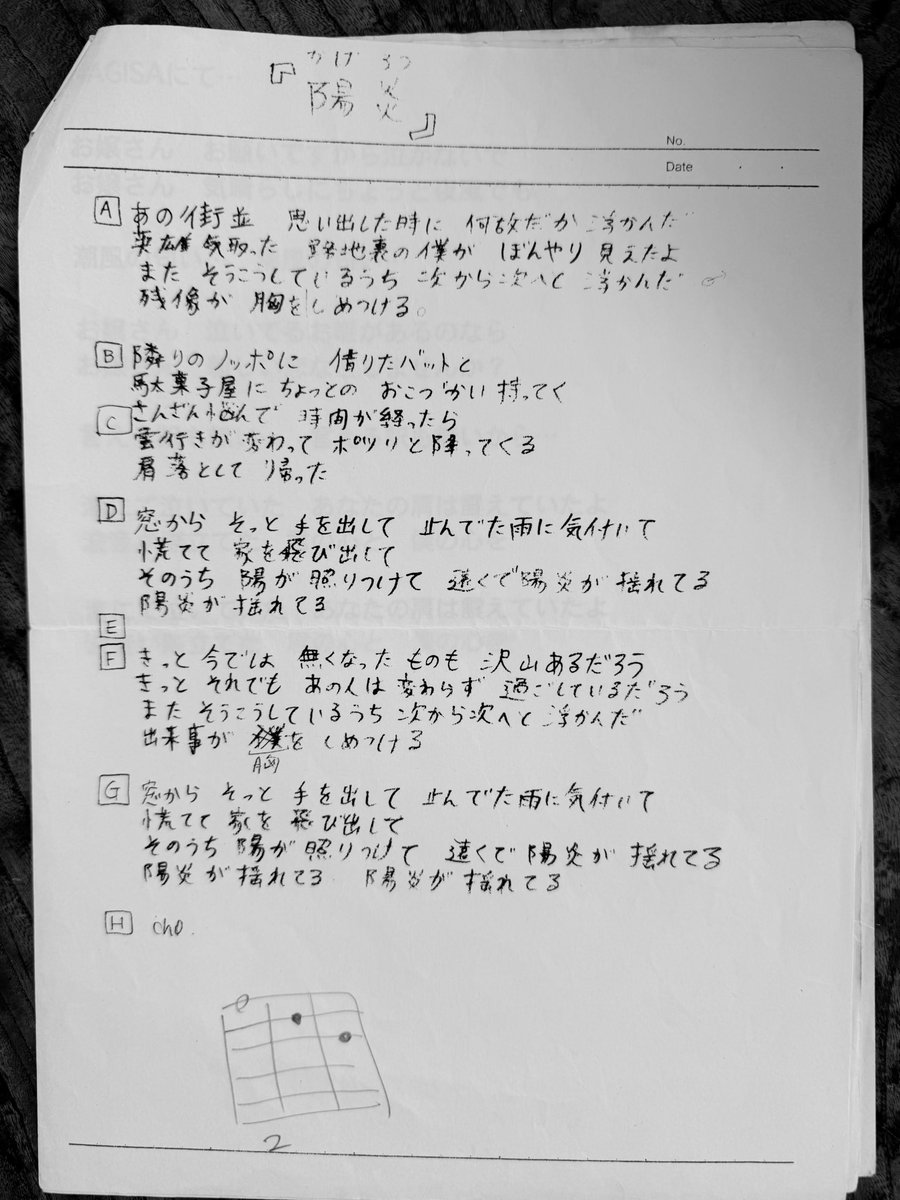 かげろう
『陽炎』
No.
Date
A あの街並 思い出した時に 何故だか 浮かんだ
英雄気取った 路地裏の僕が ぼんやり 見えたよ
また そうこうしているうち 次から次へと 浮かんだ
残像が 胸をしめつける。
B 隣りのノッポに 借りたバットと
駄菓子屋に ちょっとの おこづかい 持ってく
C さんざん悩んで 時間が経ったら
雲行きが変わって ポツリと降ってくる
肩落として 帰った
D 窓から そっと 手を出して 止んでた雨に気付いて
慌てて 家を飛び出して
そのうち 陽が照りつけて 遠くで陽炎が 揺れてる
陽炎が 揺れてる
E
F きっと 今では 無くなった ものも 沢山あるだろう
きっと それでも あの人は 変わらず 過ごしているだろう
また そうこうしているうち 次から次へと 浮かんだ
出来事が をしめつける
胸
G 窓から そっと 手を出して 止んでた雨に気付いて
慌てて 家を 飛び出して
そのうち 陽が 照りつけて 遠くで 陽炎が 揺れてる
陽炎が揺れてる 陽炎が揺れてる
H cho.
2